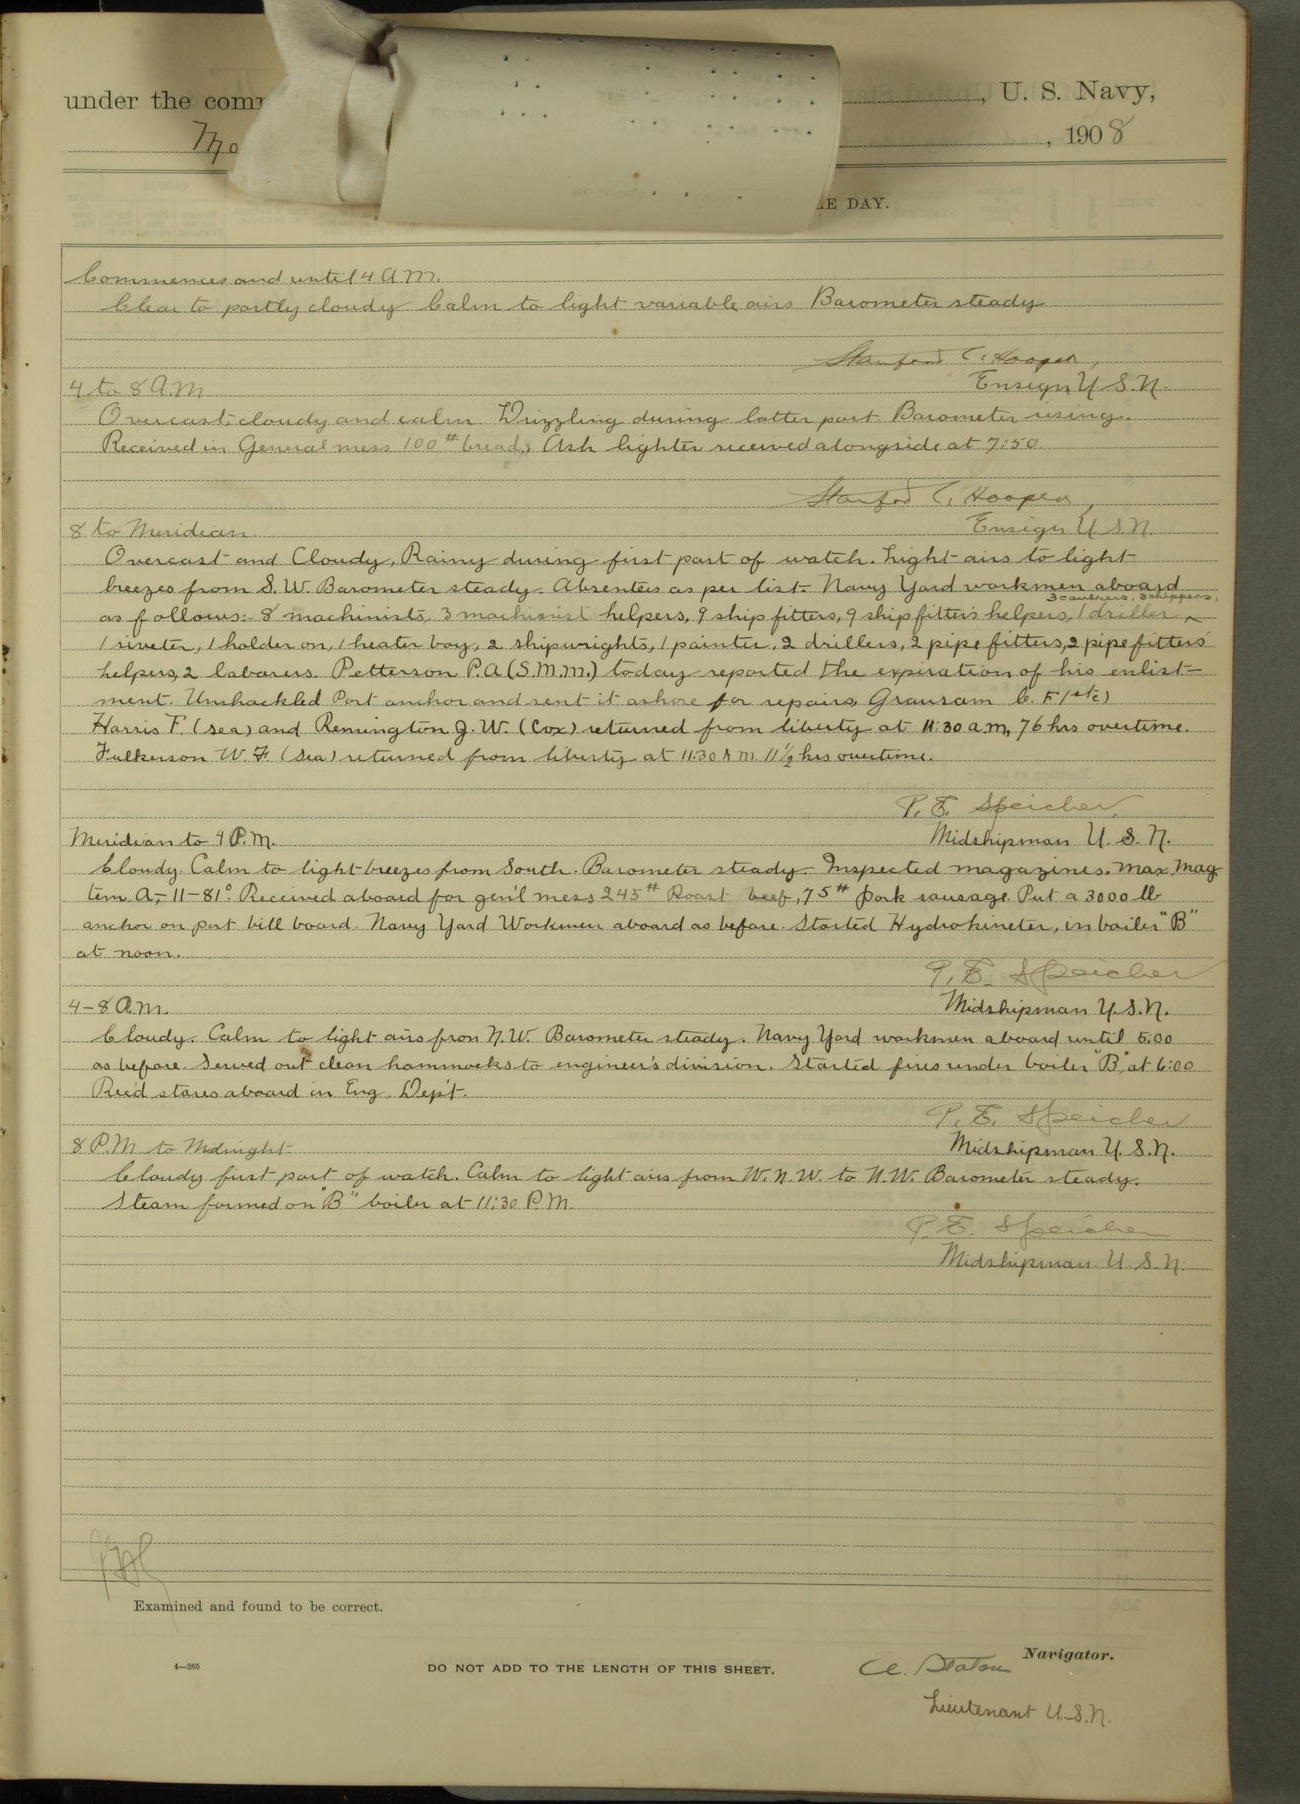 under the com , U. S. Navy,
Mo , 1908
E DAY.
Commences and until 4 A.M.
Clear to partly cloudy Calm to light variable airs Barometer steady
Stanford C. Hooper,
Ensign U.S.N.
4 to 8 A.M
Overcast, cloudy and calm Drizzling during latter part Barometer rising.
Received in General mess 100# bread, Ash lighter received alongside at 7:50.
Stanford C. Hooper,
Ensign U.S.N.
8 to Meridian
Overcast and Cloudy, Rainy during first part of watch. Light airs to light
breezes from S.W. Barometer steady. Absentees as per list. Navy Yard workmen aboard
3 caulkers, 3 chippers,
as follows:- 8 machinists, 3 machinist helpers, 9 ship fitters, 9 shipfitters helpers, 1 driller ^
1 riveter, 1 holder on, 1 heater boy, 2 shipwrights, 1 painter, 2 drillers, 2 pipe fitters, 2 pipefitters
helpers, 2 laborers. Petterson P.A (S.M.M.) today reported the expiration of his enlist-
ment. Unshackled Port anchor and sent it ashore for repairs, Gransam C. F
Harris F. (sea) and Remington J. W. (Cox) returned from liberty at 11:30 a.m, 76 hrs overtime.
Fulkerson W. F (sea) returned from liberty at 11:30 A M. 11 1/2 hrs overtime.
P. E. Speicher
Midshipman U. S. N.
Meridian to 4 P.M.
Cloudy. Calm to light breezes from South. Barometer steady. Inspected magazines. Max. Mag
tem A,-11-81°. Received aboard for gen'l mess 245# Roast beef, 75# pork sausage. Put a 3000 lb
anchor on port bill board. Navy Yard Workmen aboard as before. Started Hydrokineter, in boiler "B"
at noon.
P. E. Speicher
Midshipman U.S.N.
4-8 A.M.
Cloudy. Calm to light airs from N.W. Barometer steady. Navy Yard workmen aboard until 5:00
as before. Served out clean hammocks to engineer's division. Started fires under boiler "B" at 6:00
Rec'd stores aboard in Eng. Dep't.
P. E. Speicher
Midshipman U.S.N.
8 P.M to Midnight
Cloudy first part of watch. Calm to light airs from W.N.W. to N.W. Barometer steady.
Steam formed on "B" boiler at 11:30 P.M.
P. E. Speicher
Midshipman U.S.N.
Examined and found to be correct.
Navigator.
4—265
DO NOT ADD TO THE LENGTH OF THIS SHEET.
Lieutenant U.S.N.